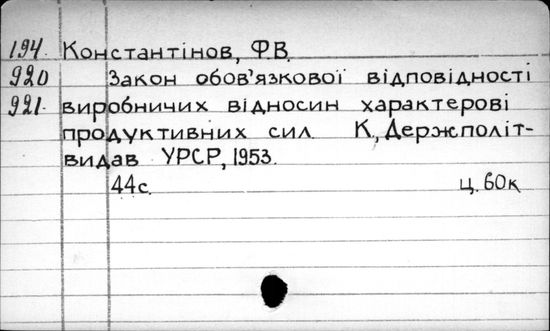 194. Константінов, Ф.В.
920 Закон обов'язкової відповідності
921. виробничих відносин характерові
продуктивних сил. К., Держполіт-
видав УРСР, 1953.
44с. ц. 60к